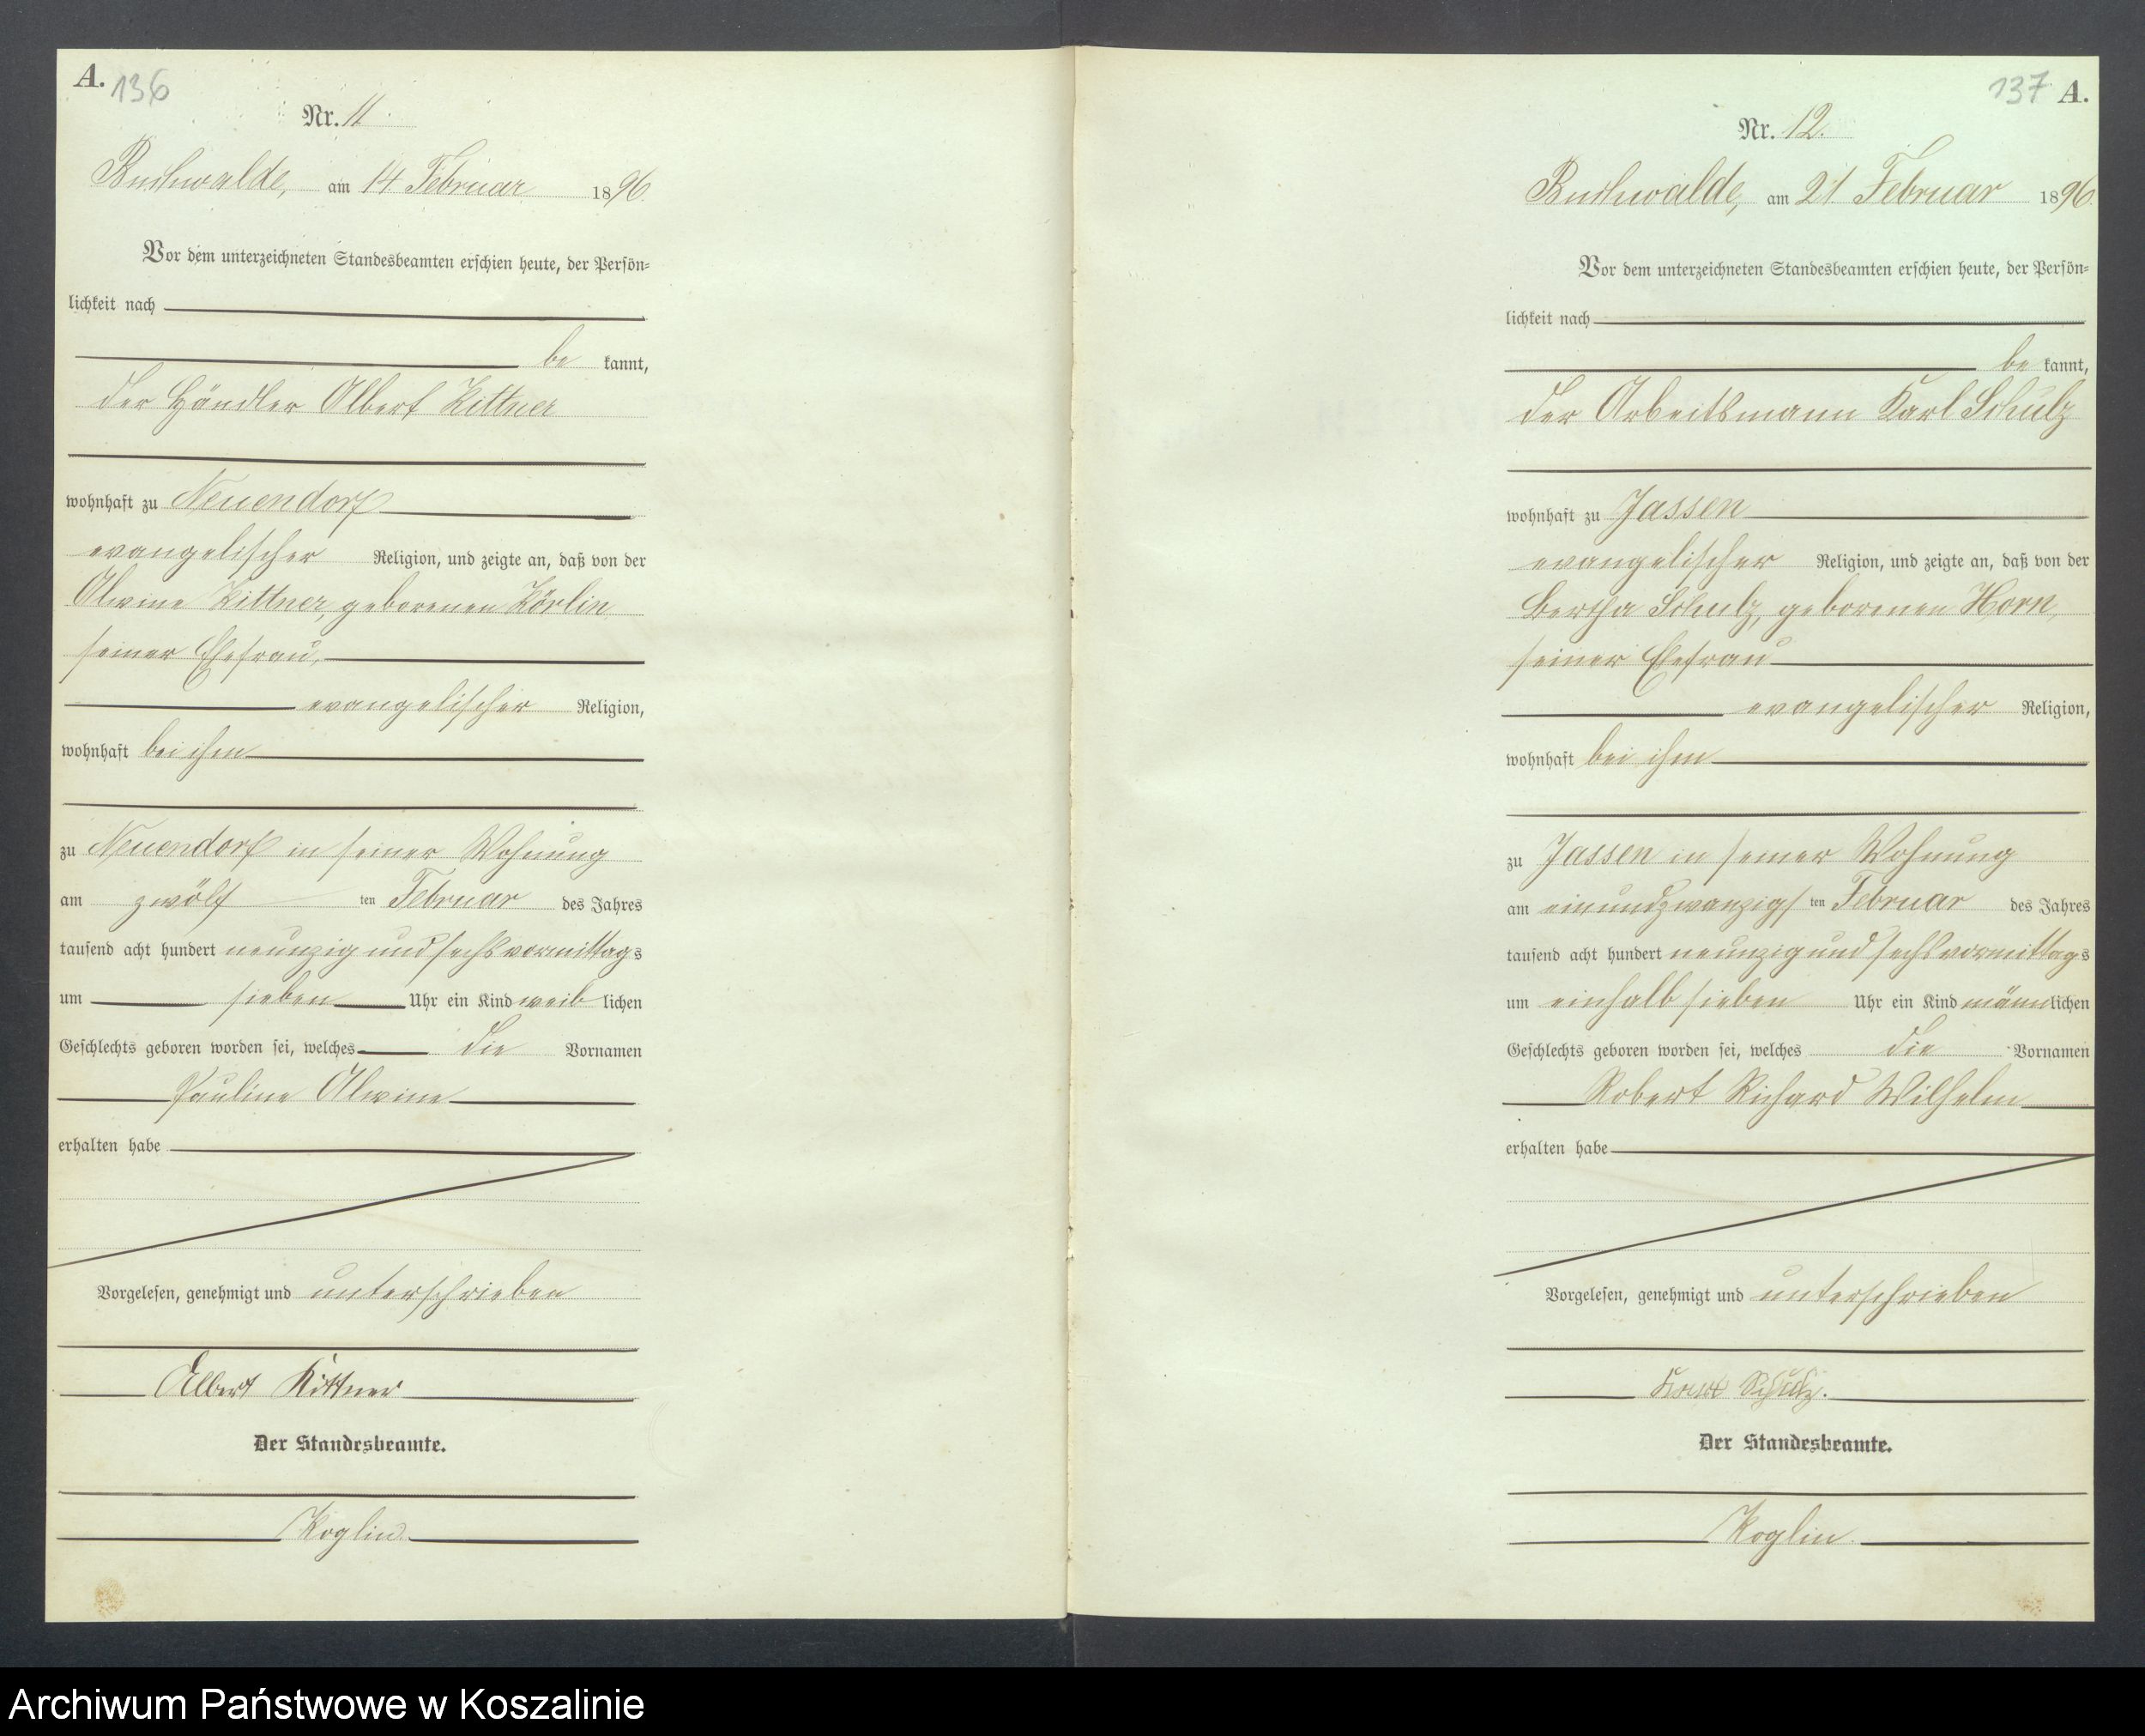 A. 136
Nr. 11
Buchwalde, am 14 Februar 1896.
Vor dem unterzeichneten Standesbeamten erschien heute, der Persön=
lichkeit nach
be kannt,
der Händler Albert Kittner
wohnhaft zu Neuendorf
evangelischer Religion, und zeigte an, daß von der
Alwine Kittner, geborenen Körlin,
seiner Ehefrau,
evangelischer Religion,
wohnhaft bei ihm
zu Neuendorf in seiner Wohnung
am zwölf ten Februar des Jahres
tausend acht hundert neunzig und sechs vormittags
um sieben Uhr ein Kind weib lichen
Geschlechts geboren worden sei, welches die Vornamen
Pauline Alwine
erhalten habe
Vorgelesen, genehmigt und unterschrieben
Albert Kittner
Der Standesbeamte.
Koglin.
137 A.
Nr. 12.
Buchwalde, am 21. Februar 1896.
Vor dem unterzeichneten Standesbeamten erschien heute, der Persön=
lichkeit nach
be kannt,
der Arbeitsmann Karl Schulz
wohnhaft zu Jassen
evangelischer Religion, und zeigte an, daß von der
Bertha Schulz, geborenen Horn,
seiner Ehefrau
evangelischer Religion,
wohnhaft bei ihm
zu Jassen in seiner Wohnung
am einundzwanzigs ten Februar des Jahres
tausend acht hundert neunzig und sechs vormittags
um einhalb sieben Uhr ein Kind männlichen
Geschlechts geboren worden sei, welches die Vornamen
Robert Richard Wilhelm
erhalten habe
Vorgelesen, genehmigt und unterschrieben
Karl Schulz.
Der Standesbeamte.
Koglin.
Archiwum Państwowe w Koszalinie